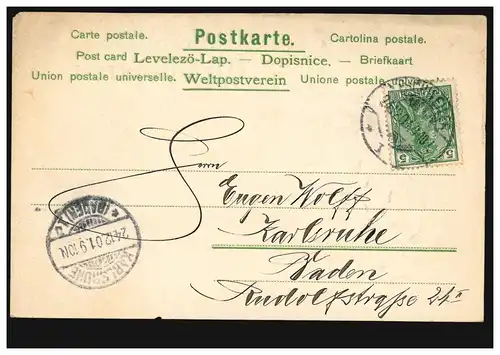 Carte postale. Postkarte. Cartolina postale.
Post card Levelezö-Lap. — Dopisnice. — Briefkaart
Union postale universelle. Weltpostverein Unione postale
Herrn
Eugen Wolff
Karlsruhe
Baden
Rudolfstraße 24 II
KARLSRUHE
24.12.01.9-10N
(BADEN)
5 5